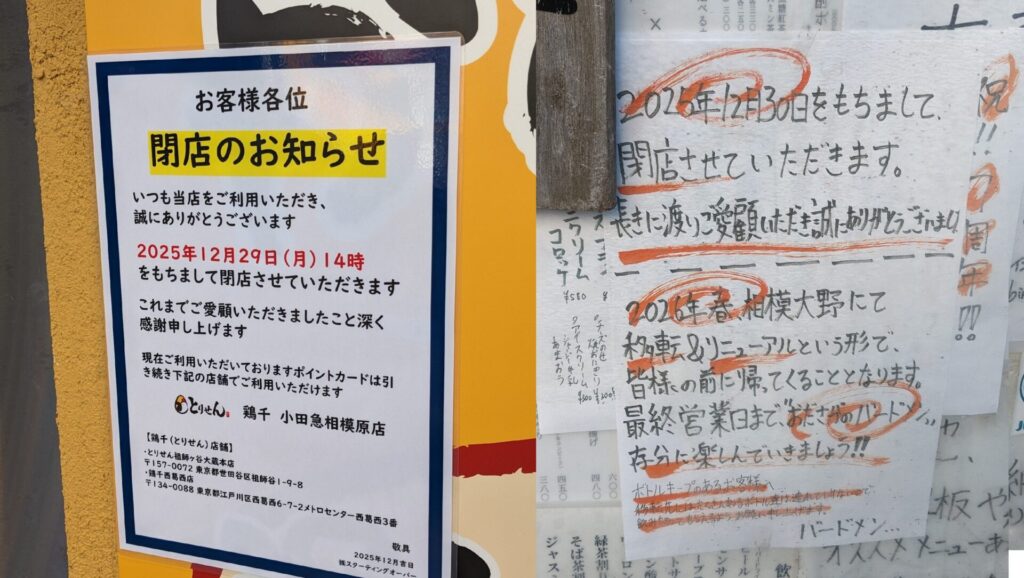 お客様各位
閉店のお知らせ
いつも当店をご利用いただき、
誠にありがとうございます
2025年12月29日(月)14時
をもちまして閉店させていただきます
これまでご愛顧いただきましたこと深く
感謝申し上げます
現在ご利用いただいておりますポイントカードは引
き続き下記の店舗でご利用いただけます
とりせん 鶏千 小田急相模原店
【鶏千(とりせん)店舗】
・とりせん祖師ヶ谷大蔵本店
〒157-0072 東京都世田谷区祖師谷1-9-8
・鶏千西葛西店
〒134-0088 東京都江戸川区西葛西6-7-2メトロセンター西葛西3番
敬具
2025年12月吉日
㈱スターティングオーバー
2025年12月30日をもちまして、
閉店させていただきます。
長きに渡りご愛顧いただき誠にありがとうございました
2026年春 相模大野にて
移転&リニューアルという形で、
皆様の前に帰ってくることとなります。
最終営業日まで"おださがのバードメン"
存分に楽しんでいきましょう!!
ボトルキープのあるお客様へ
バードメン...
祝!!7周年!!
クリーム
コロッケ
¥550
板や
オススメメニューあ
緑茶割
そば茶割
ジャス